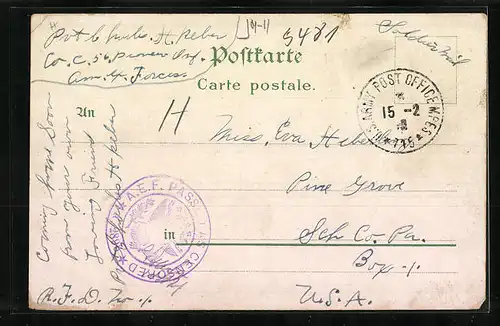 Pvt Charles H. Heber
Co. C. 5th Pioneer Inf.
Am. Ex. Forces
5481
Soldier's Mail
Postkarte
Carte postale.
U.S. ARMY POST OFFICE M.P.E.S.
15-2
An
H
Miss. Eva Heber
Pine Grove
in
Sch Co. Pa.
Box
U.S.A.
Coming home soon
from your own
loving Friend
Heber
A.E.F. PASSED AS CENSORED
R.F.D. No. 1